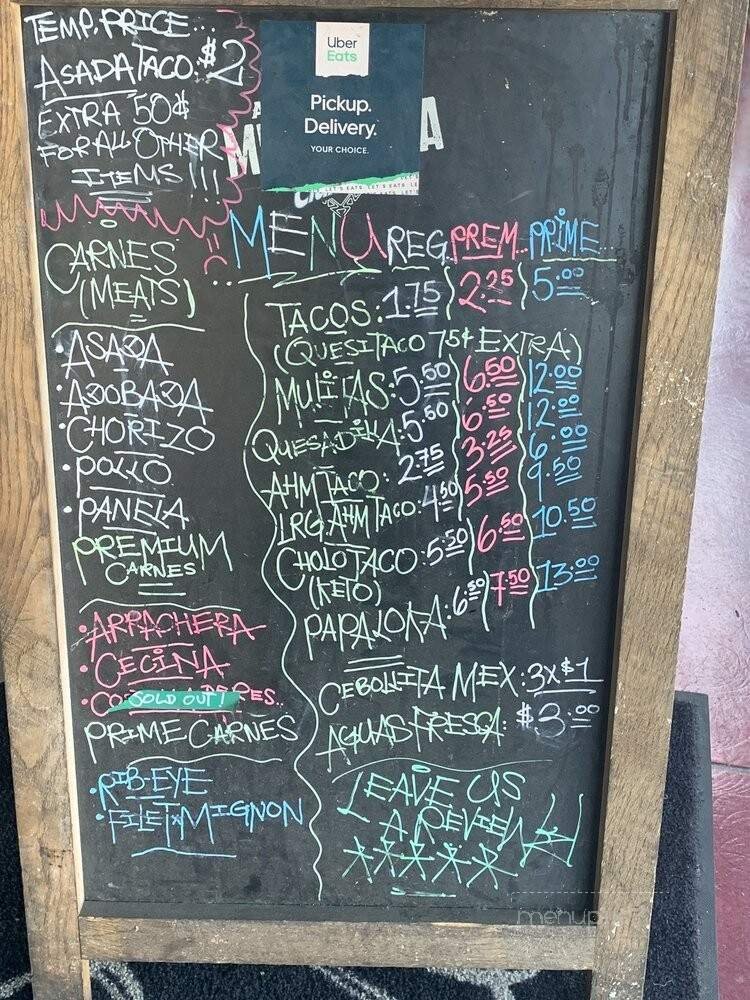 TEMP. PRICE...
ASADA TACO: $2
EXTRA 50¢
FOR ALL OTHER
ITEMS!!!
Uber
Eats
Pickup.
Delivery.
YOUR CHOICE.
LET'S EATS LET'S EATS
CARNES
(MEATS)
• ASADA
• ADOBADA
• CHORIZO
• POLLO
• PANELA
PREMIUM
CARNES
• ARRACHERA
• CECINA
SOLD OUT!
PRIME CARNES
• RIB-EYE
• FILET MIGNON
MENU REG. PREM.. PRIME..
TACOS: 1.75 2.25 5.00
(QUESITACO 75¢ EXTRA)
MULITAS: 5.50 6.50 12.00
QUESADILLA: 5.50 6.50 12.00
AHM TACO: 2.75 3.25 6.00
LRG. AHM TACO: 4.50 5.50 9.50
CHOLO TACO: 5.50 6.50 10.50
(KETO)
PAPALONA: 6.50 7.50 13.00
CEBOLLITA MEX: 3x$1
AGUAS FRESCA: $3.00
LEAVE US
A REVIEW
*****
menupix